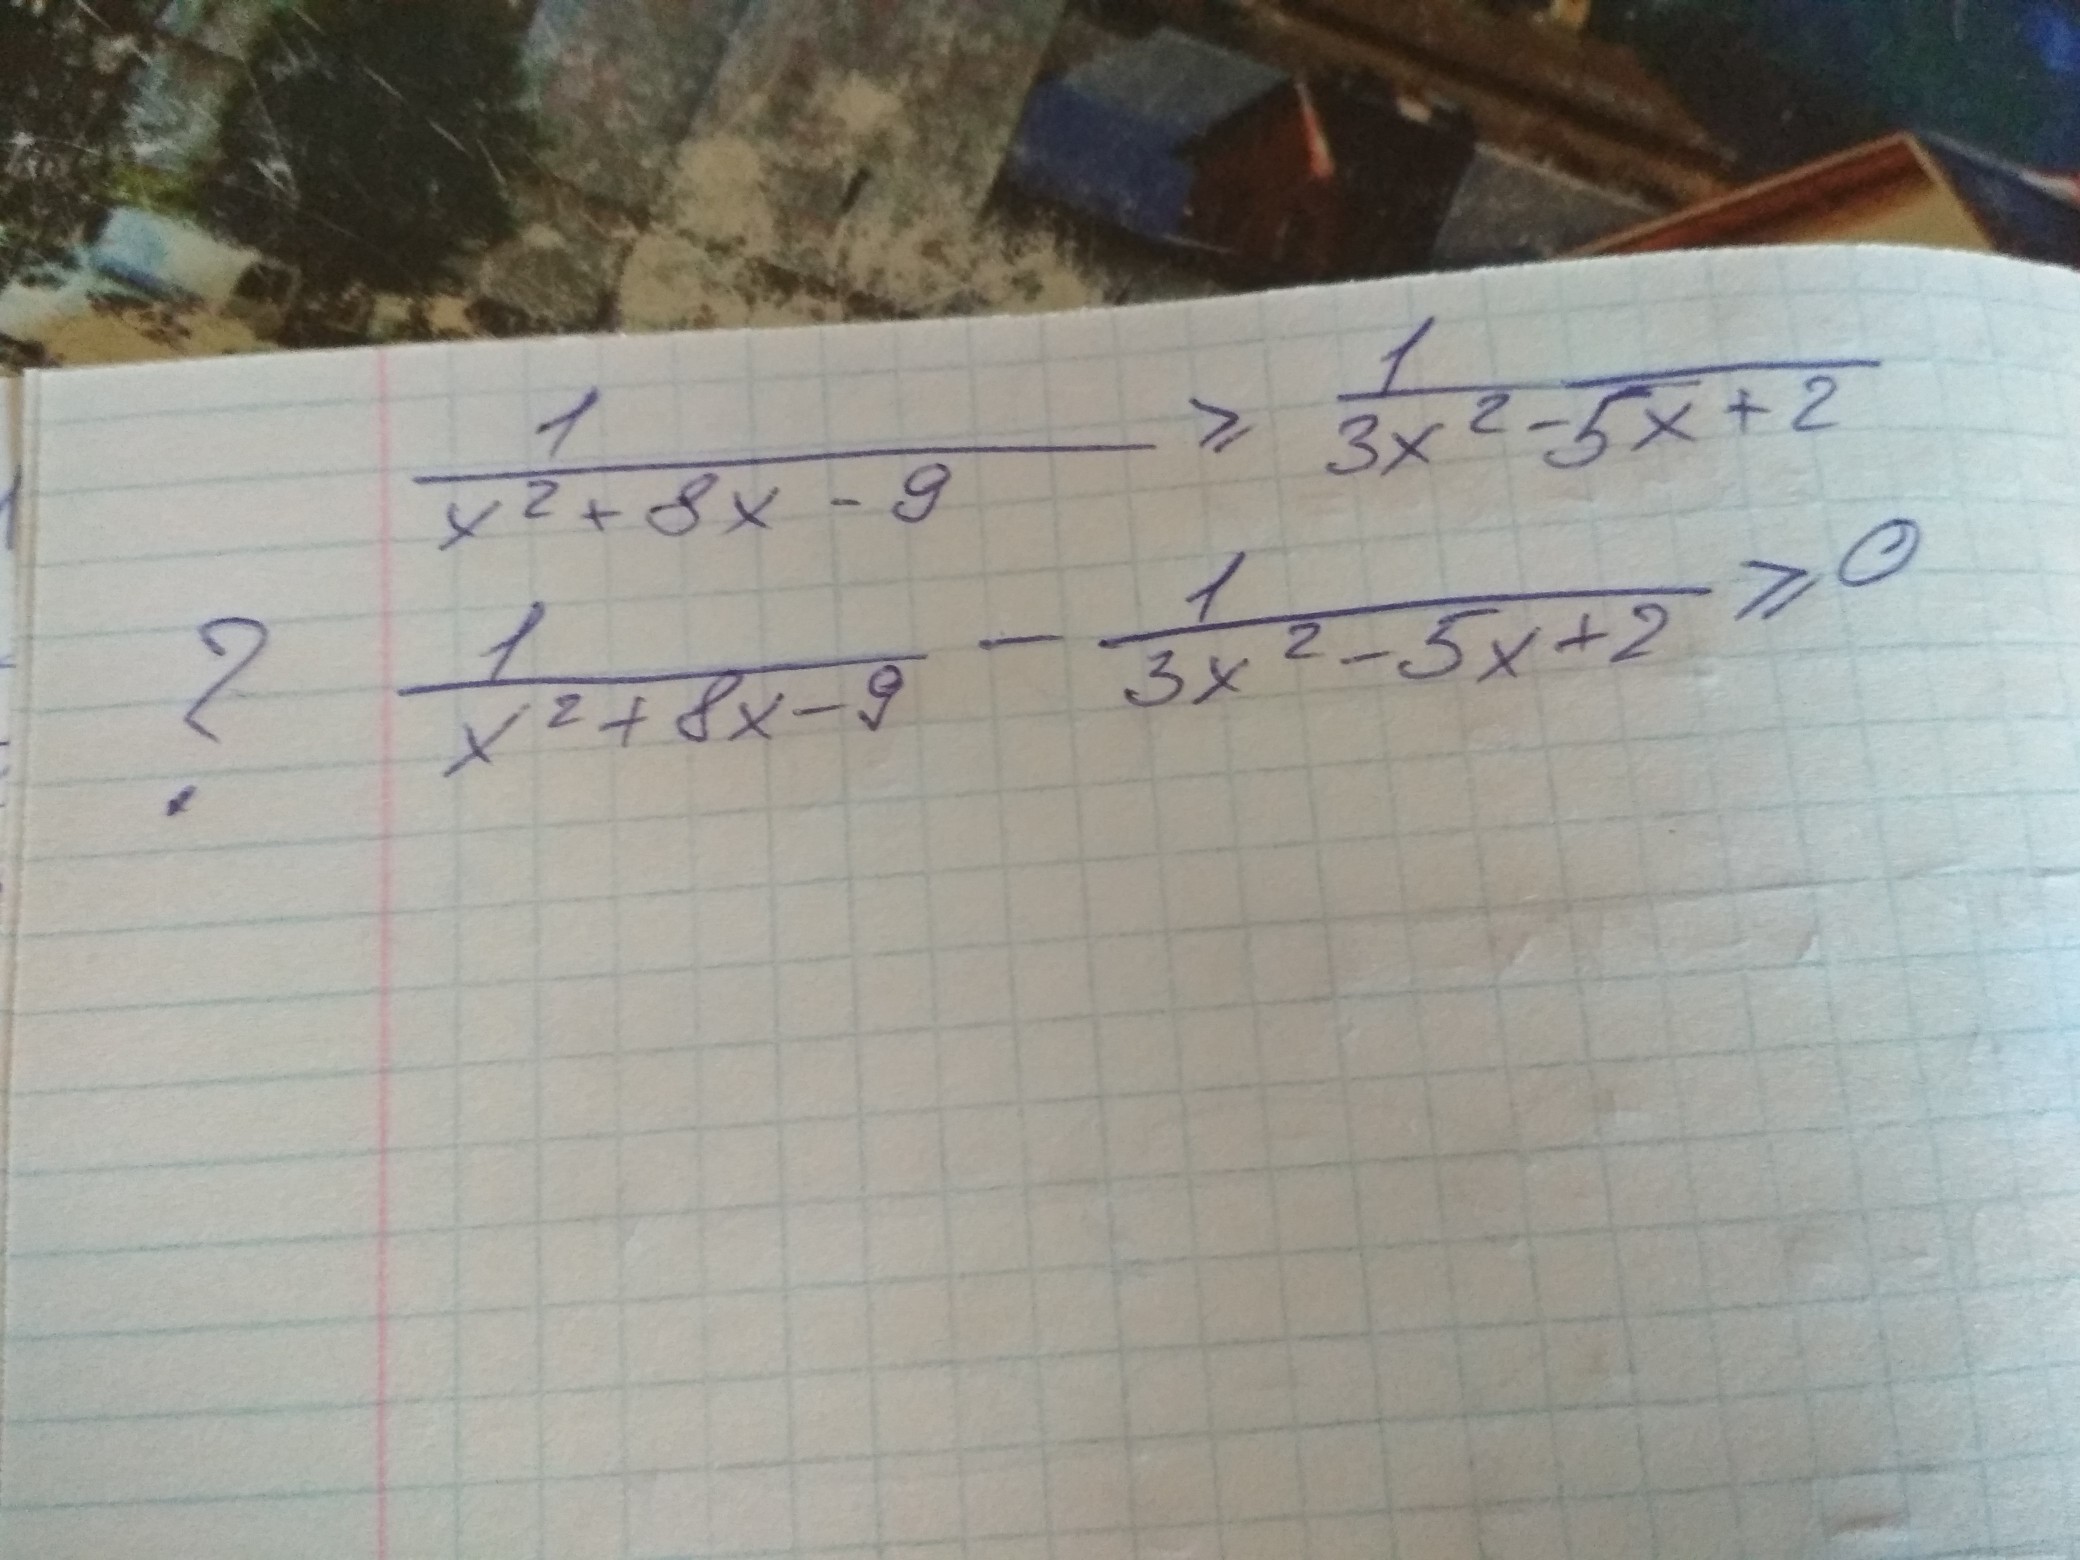 1/(x²+8x-9) ⩾ 1/(3x²-5x+2)
? 1/(x²+8x-9) - 1/(3x²-5x+2) ⩾ 0